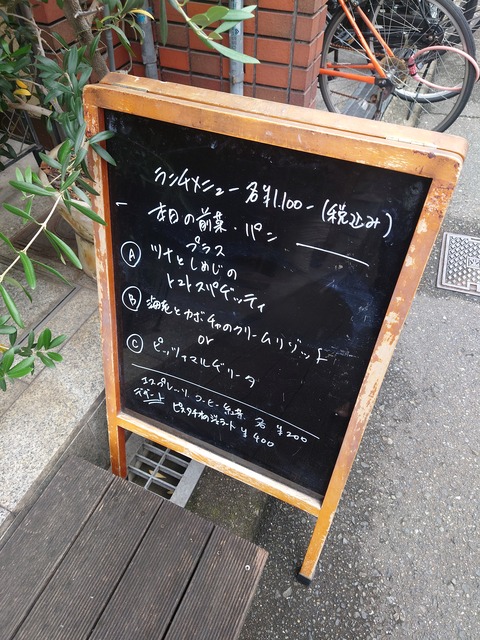 ランチメニュー 各¥1.100-(税込み)
本日の前菜・パン
プラス
Ⓐ ツナとしめじの
トマトスパゲッティ
Ⓑ とカボチャのクリームリゾット
or
Ⓒ ピッツァマルゲリータ
エスプレッソ、コーヒー、紅茶 各¥200
デザート ピスタチオのジェラート ¥400